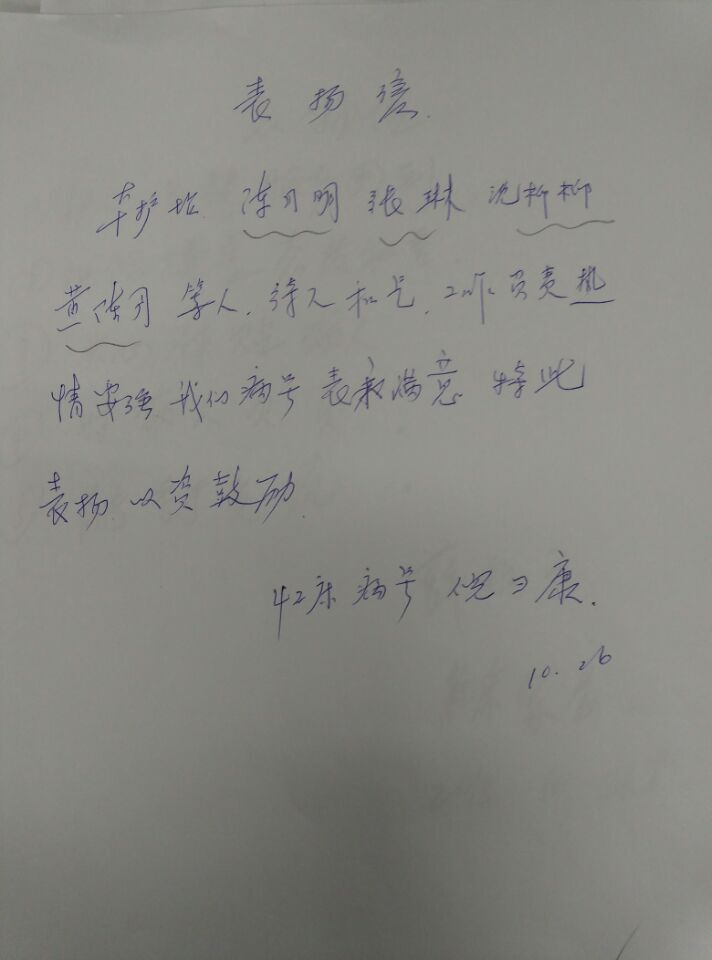 表扬信.
护士 陈月明 张琳 沈柳柳
黄陈月 等人. 待人和气. 工作负责热
情 我们病号 表示满意 特此
表扬 以资鼓励
42床病号 倪日康.
10.26